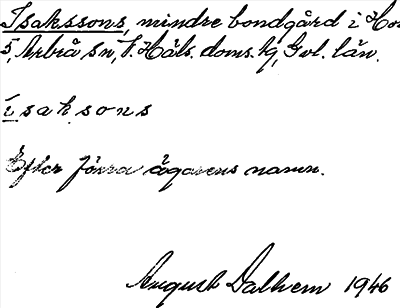 Isakssons, mindre bondgård i Hov
5, Arbrå sn, V. Häls. doms. hg, Gvl. län.
isaksons
Efter förra ägarens namn.
August Dalhem 1946